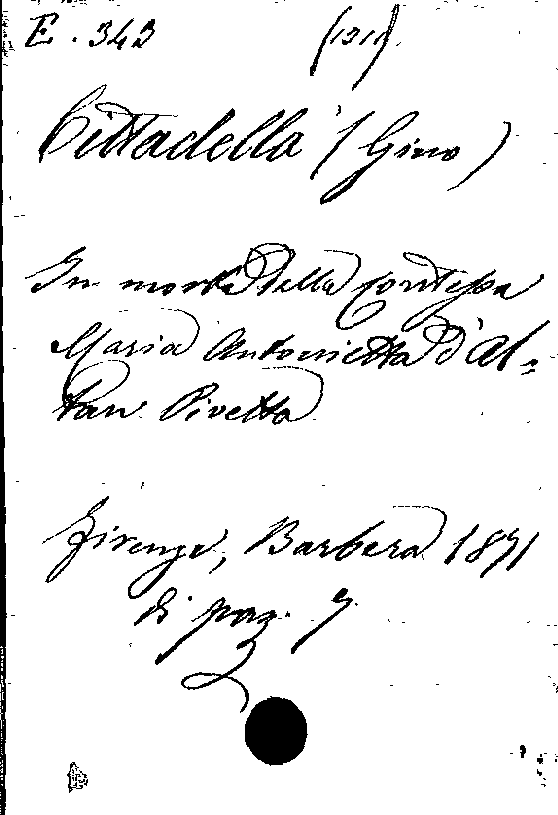 E. 343 (1311)
Cittadella (Gino)
In morte della Contessa
Maria Antonietta d'Al=
tan Pivetta
Firenze, Barbera 1871
di pag. 7